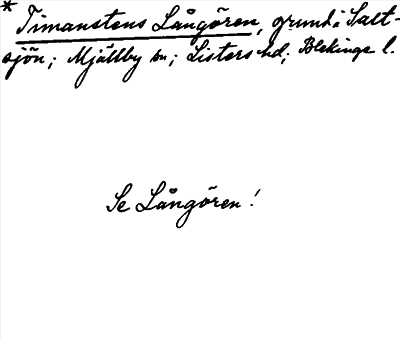 * Timanstens Långören, grund i Salt-
sjön; Mjällby sn; Listers hd; Blekinge l.
Se Långören!